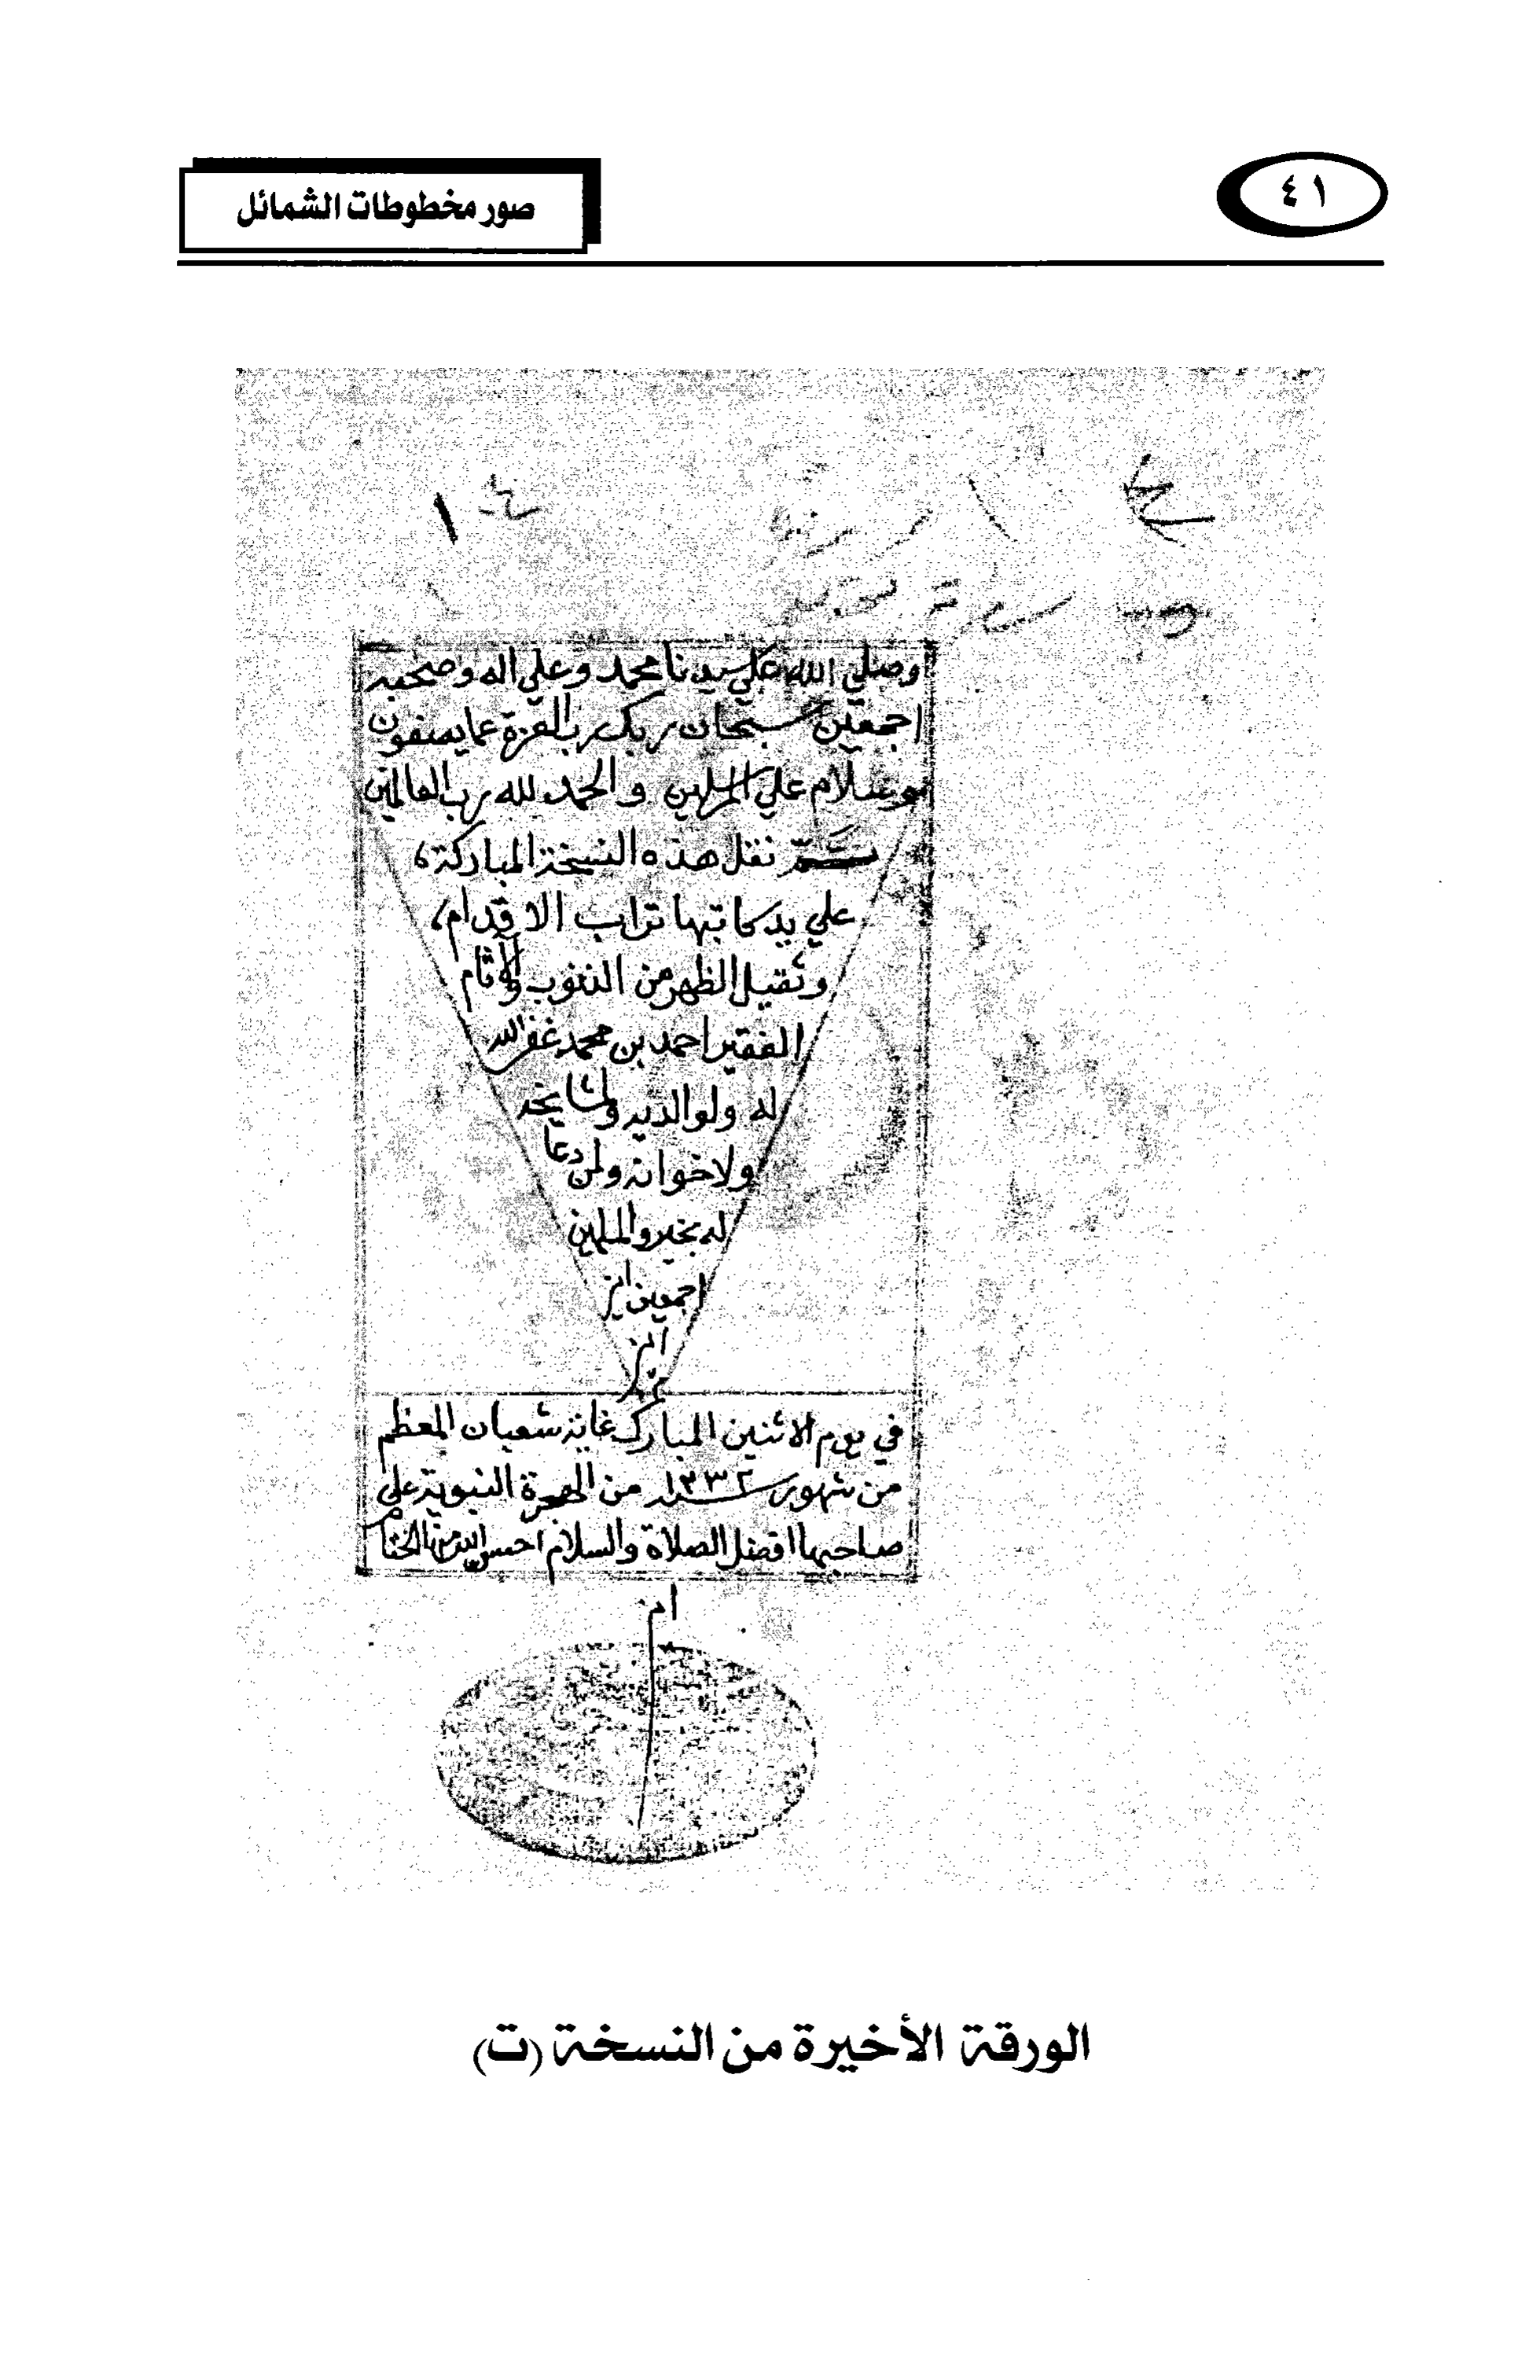 صور مخطوطات الشمائل
٤١
وصلى الله على سيدنا محمد وعلى اله وصحبه
اجمعين سبحان ربك رب العزة عما يصفون
وسلام علي المرسلين والحمد لله رب العالمين
تم نقل هذه النسخة المباركة
علي يد كاتبها تراب الاقدام
وثقيل الظهر من الذنوب والآثام
الفقير احمد بن محمد غفر الله
له ولوالديه ولمشايخه
ولاخوانه ولمن دعا
له بخير والمسلمين
اجمعين امين
امين
في يوم الاثنين المبارك غاية شعبان المعظم
من شهور سنة ١٣٣٢ من الهجرة النبوية علي
صاحبها افضل الصلاة والسلام احسن الله الختام
امين
الورقة الأخيرة من النسخة (ت)